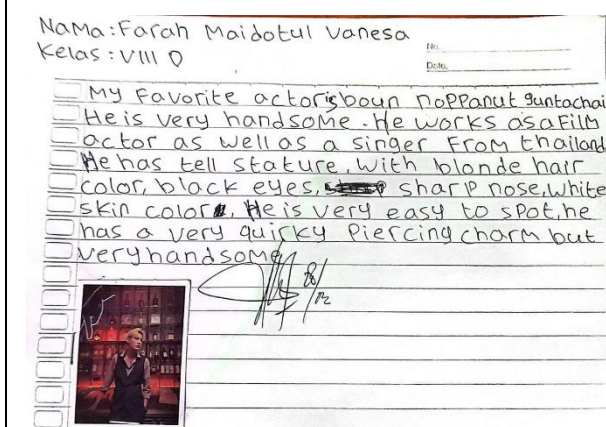 Nama : Farah Maidotul Vanesa
Kelas : VIII D
No.
Date.
My Favorite actor is boun noppanut guntachai
He is very handsome. He works as a Film
actor as well as a singer From thailand
He has tell stature, with blonde hair
color, black eyes, sharp nose, white
skin color, He is very easy to spot, he
has a very quirky Piercing charm but
very handsome